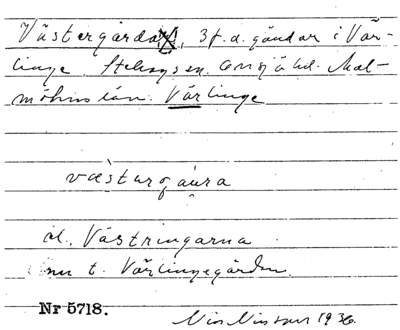 Västergårda, 3 f. d. gårdar i Vär-
linge, Stehags sn. Onsjö hd. Mal-
möhus län. Värlinge
væsturgaura
el. Västringarna
nu t. Värlingegården.
Nr 5718.
Nils Nilsson 1936.